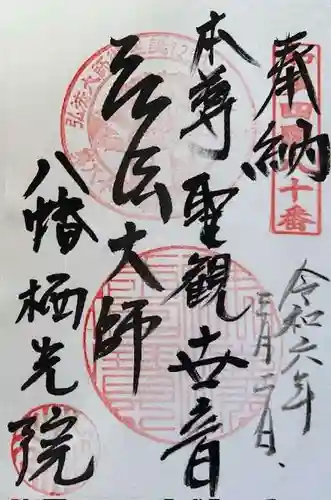 奉納
本尊聖観世音
弘法大師
八幡栖光院
令和六年
三月二十日
弘法大師
十番